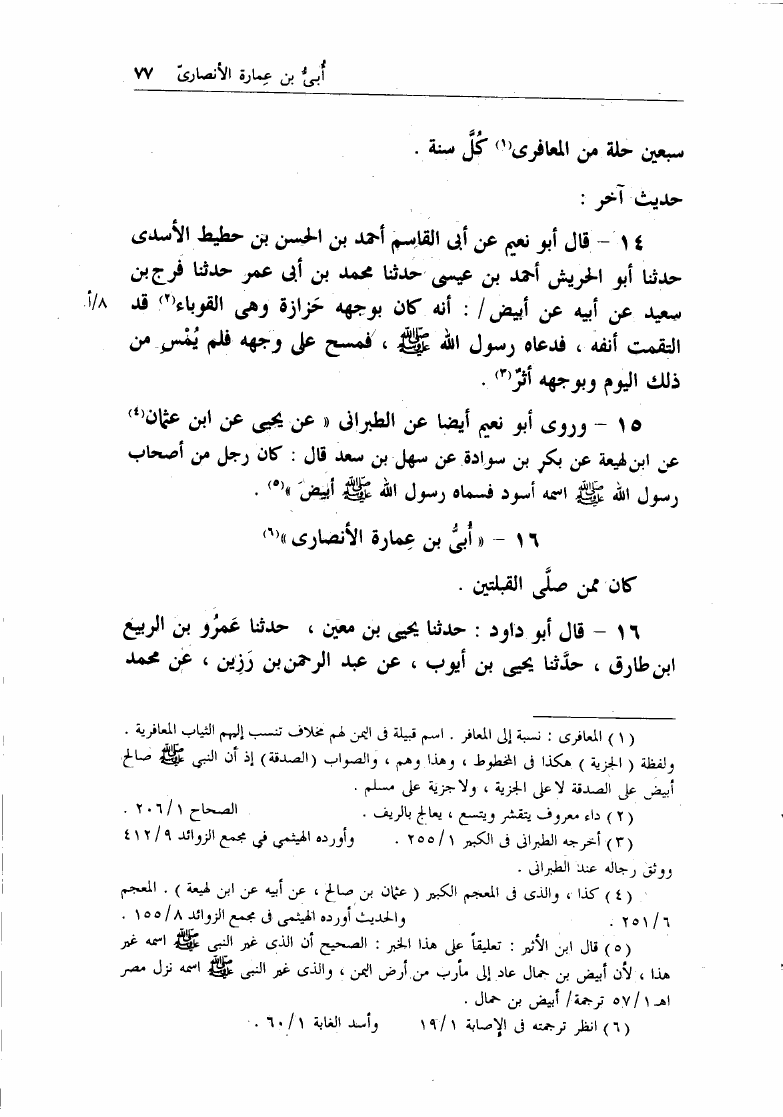 أُبىُّ بن عِمارة الأنصارىّ ٧٧
سبعين حلة من المعافرى(١) كُلَّ سنة .
حديث آخر :
١٤ – قال أبو نعيم عن أبى القاسم أحمد بن الحسن بن حطيط الأسدى
حدثنا أبو الحريش أحمد بن عيسى حدثنا محمد بن أبى عمر حدثنا فرج بن
سعيد عن أبيه عن أبيض / : أنه كان بوجهه حَزازة وهى القوباء(٢) قد ٨/أ.
التقمت أنفه ، فدعاه رسول الله ﷺ ، فمسح على وجهه فلم يُمْسِ من
ذلك اليوم وبوجهه أثرٌ(٣) .
١٥ – وروى أبو نعيم أيضا عن الطبرانى « عن يحيى عن ابن عثمان(٤)
عن ابن لهيعة عن بكر بن سوادة عن سهل بن سعد قال : كان رجل من أصحاب
رسول الله ﷺ اسمه أسود فسماه رسول الله ﷺ أبيضَ »(٥) .
١٦ – « أُبىُّ بن عِمارة الأنصارى »(٦)
كان ممن صلَّى القبلتين .
١٦ – قال أبو داود : حدثنا يحيى بن معين ، حدثنا عَمرُو بن الربيع
ابن طارق ، حدَّثنا يحيى بن أيوب ، عن عبد الرحمن بن رَزِين ، عن محمد
(١) المعافرى : نسبة إلى المعافر . اسم قبيلة فى اليمن لهم مخلاف تنسب إليهم الثياب المعافرية .
ولفظة ( الجزية ) هكذا فى المخطوط ، وهذا وهم ، والصواب (الصدقة) إذ أن النبى ﷺ صالح
أبيض على الصدقة لا على الجزية ، ولا جزية على مسلم .
(٢) داء معروف يتقشر ويتسع ، يعالج بالريف . الصحاح ٢٠٦/١ .
(٣) أخرجه الطبرانى فى الكبير ٢٥٥/١ . وأورده الهيثمى في مجمع الزوائد ٤١٢/٩
ووثق رجاله عند الطبرانى .
(٤) كذا ، والذى فى المعجم الكبير ( عثمان بن صالح ، عن أبيه عن ابن لهيعة ) . المعجم
٢٥١/٦ . والحديث أورده الهيثمى فى مجمع الزوائد ١٥٥/٨ .
(٥) قال ابن الأثير : تعليقاً على هذا الخبر : الصحيح أن الذى غير النبى ﷺ اسمه غير
هذا ، لأن أبيض بن حمال عاد إلى مأرب من أرض اليمن ، والذى غير النبى ﷺ اسمه نزل مصر
اهـ ٥٧/١ ترجمة/ أبيض بن حمال .
(٦) انظر ترجمته فى الإصابة ١٩/١ وأسد الغابة ٦٠/١ .